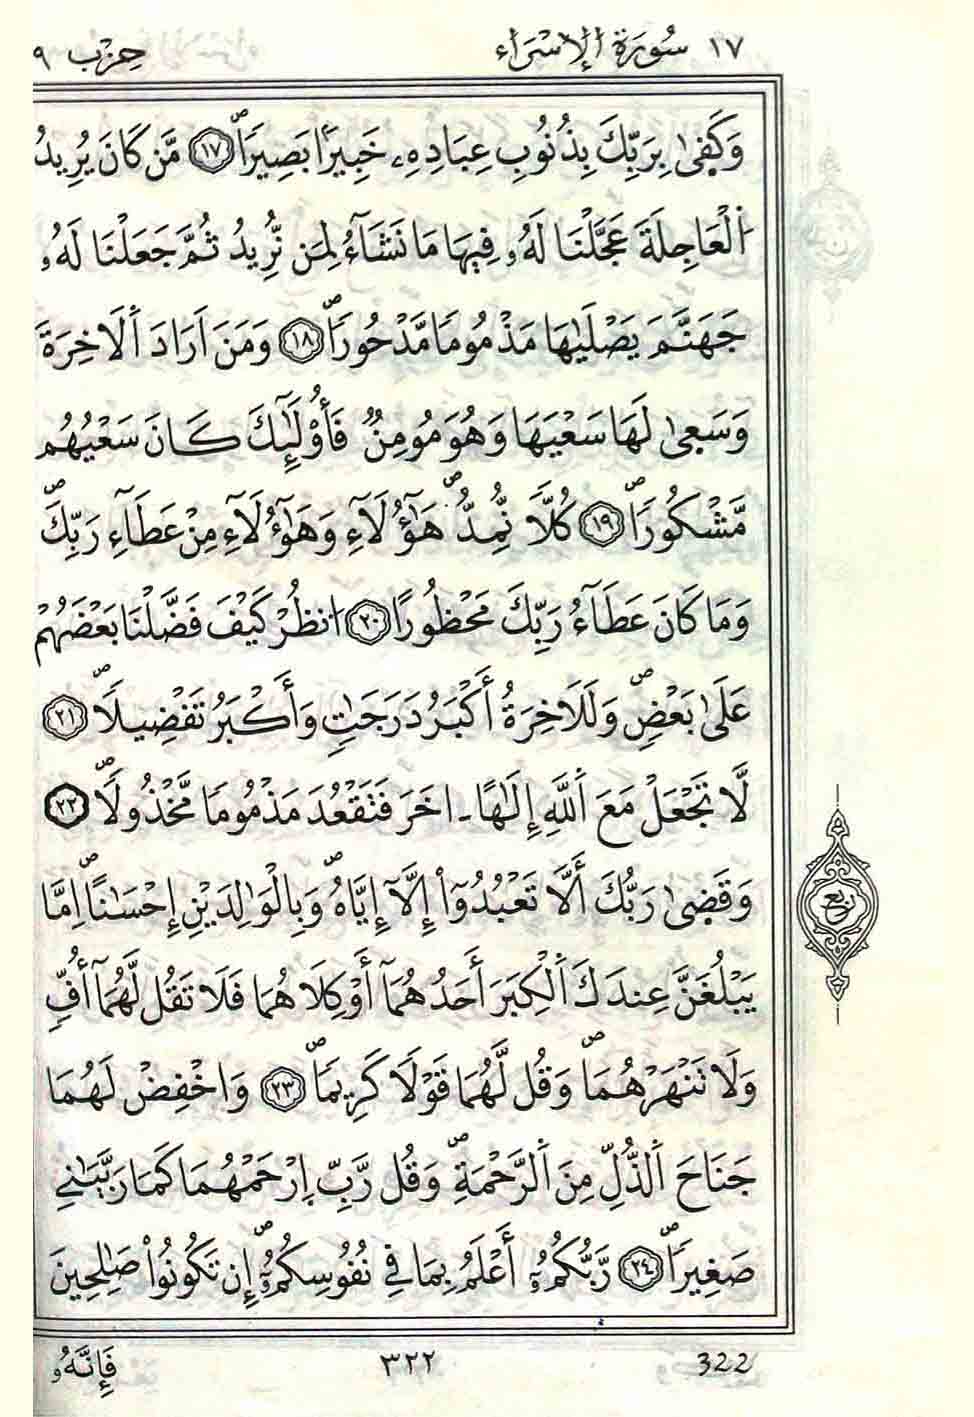 ١٧ سُورَةُ الإِسْرَاء حِزْب ٩
وَكَفىٰ بِرَبِّكَ بِذُنُوبِ عِبَادِهِۦ خَبِيرَۢا بَصِيرٗاۖ ١٧ مَّن كَانَ يُرِيدُ
اُ۬لْعَاجِلَةَ عَجَّلْنَا لَهُۥ فِيهَا مَا نَشَآءُ لِمَن نُّرِيدُ ثُمَّ جَعَلْنَا لَهُۥ
جَهَنَّمَ يَصْلَيٰهَا مَذْمُومٗا مَّدْحُورٗاۖ ١٨ وَمَنَ اَرَادَ اَ۬لَاخِرَةَ
وَسَعىٰ لَهَا سَعْيَهَا وَهُوَ مُومِنٞ فَأُوْلَٰٓئِكَ كَانَ سَعْيُهُم
مَّشْكُورٗاۖ ١٩ كُلّٗا نُّمِدُّۖ هَٰٓؤُلَآءِ وَهَٰٓؤُلَآءِ مِنْ عَطَآءِ رَبِّكَۖ
وَمَا كَانَ عَطَآءُ رَبِّكَ مَحْظُورًاۖ ٢٠ اَ۟نظُرْ كَيْفَ فَضَّلْنَا بَعْضَهُمْ
عَلَىٰ بَعْضٖۖ وَلَلَاخِرَةُ أَكْبَرُ دَرَجَٰتٖ وَأَكْبَرُ تَفْضِيلاٗۖ ٢١
لَّا تَجْعَلْ مَعَ اَ۬للَّهِ إِلَٰهًا ـ اخَرَ فَتَقْعُدَ مَذْمُومٗا مَّخْذُولاٗۖ ٢٢
وَقَضىٰ رَبُّكَ أَلَّا تَعْبُدُوٓاْ إِلَّآ إِيَّاهُۖ وَبِالْوَٰلِدَيْنِ إِحْسَٰنًاۖ اِمَّا
ربع
يَبْلُغَنَّ عِندَكَ اَ۬لْكِبَرَ أَحَدُهُمَآ أَوْ كِلَاهُمَا فَلَا تَقُل لَّهُمَآ أُفّٖ
وَلَا تَنْهَرْهُمَاۖ وَقُل لَّهُمَا قَوْلٗا كَرِيمٗاۖ ٢٣ وَاخْفِضْ لَهُمَا
جَنَاحَ اَ۬لذُّلِّ مِنَ اَ۬لرَّحْمَةِۖ وَقُل رَّبِّ اِ۪رْحَمْهُمَا كَمَا رَبَّيَٰنِے
صَغِيرٗاۖ ٢٤ رَّبُّكُمُۥٓ أَعْلَمُ بِمَا فِي نُفُوسِكُمُۥٓۖ إِن تَكُونُواْ صَٰلِحِينَ
فَإِنَّهُۥ ٣٢٢ 322